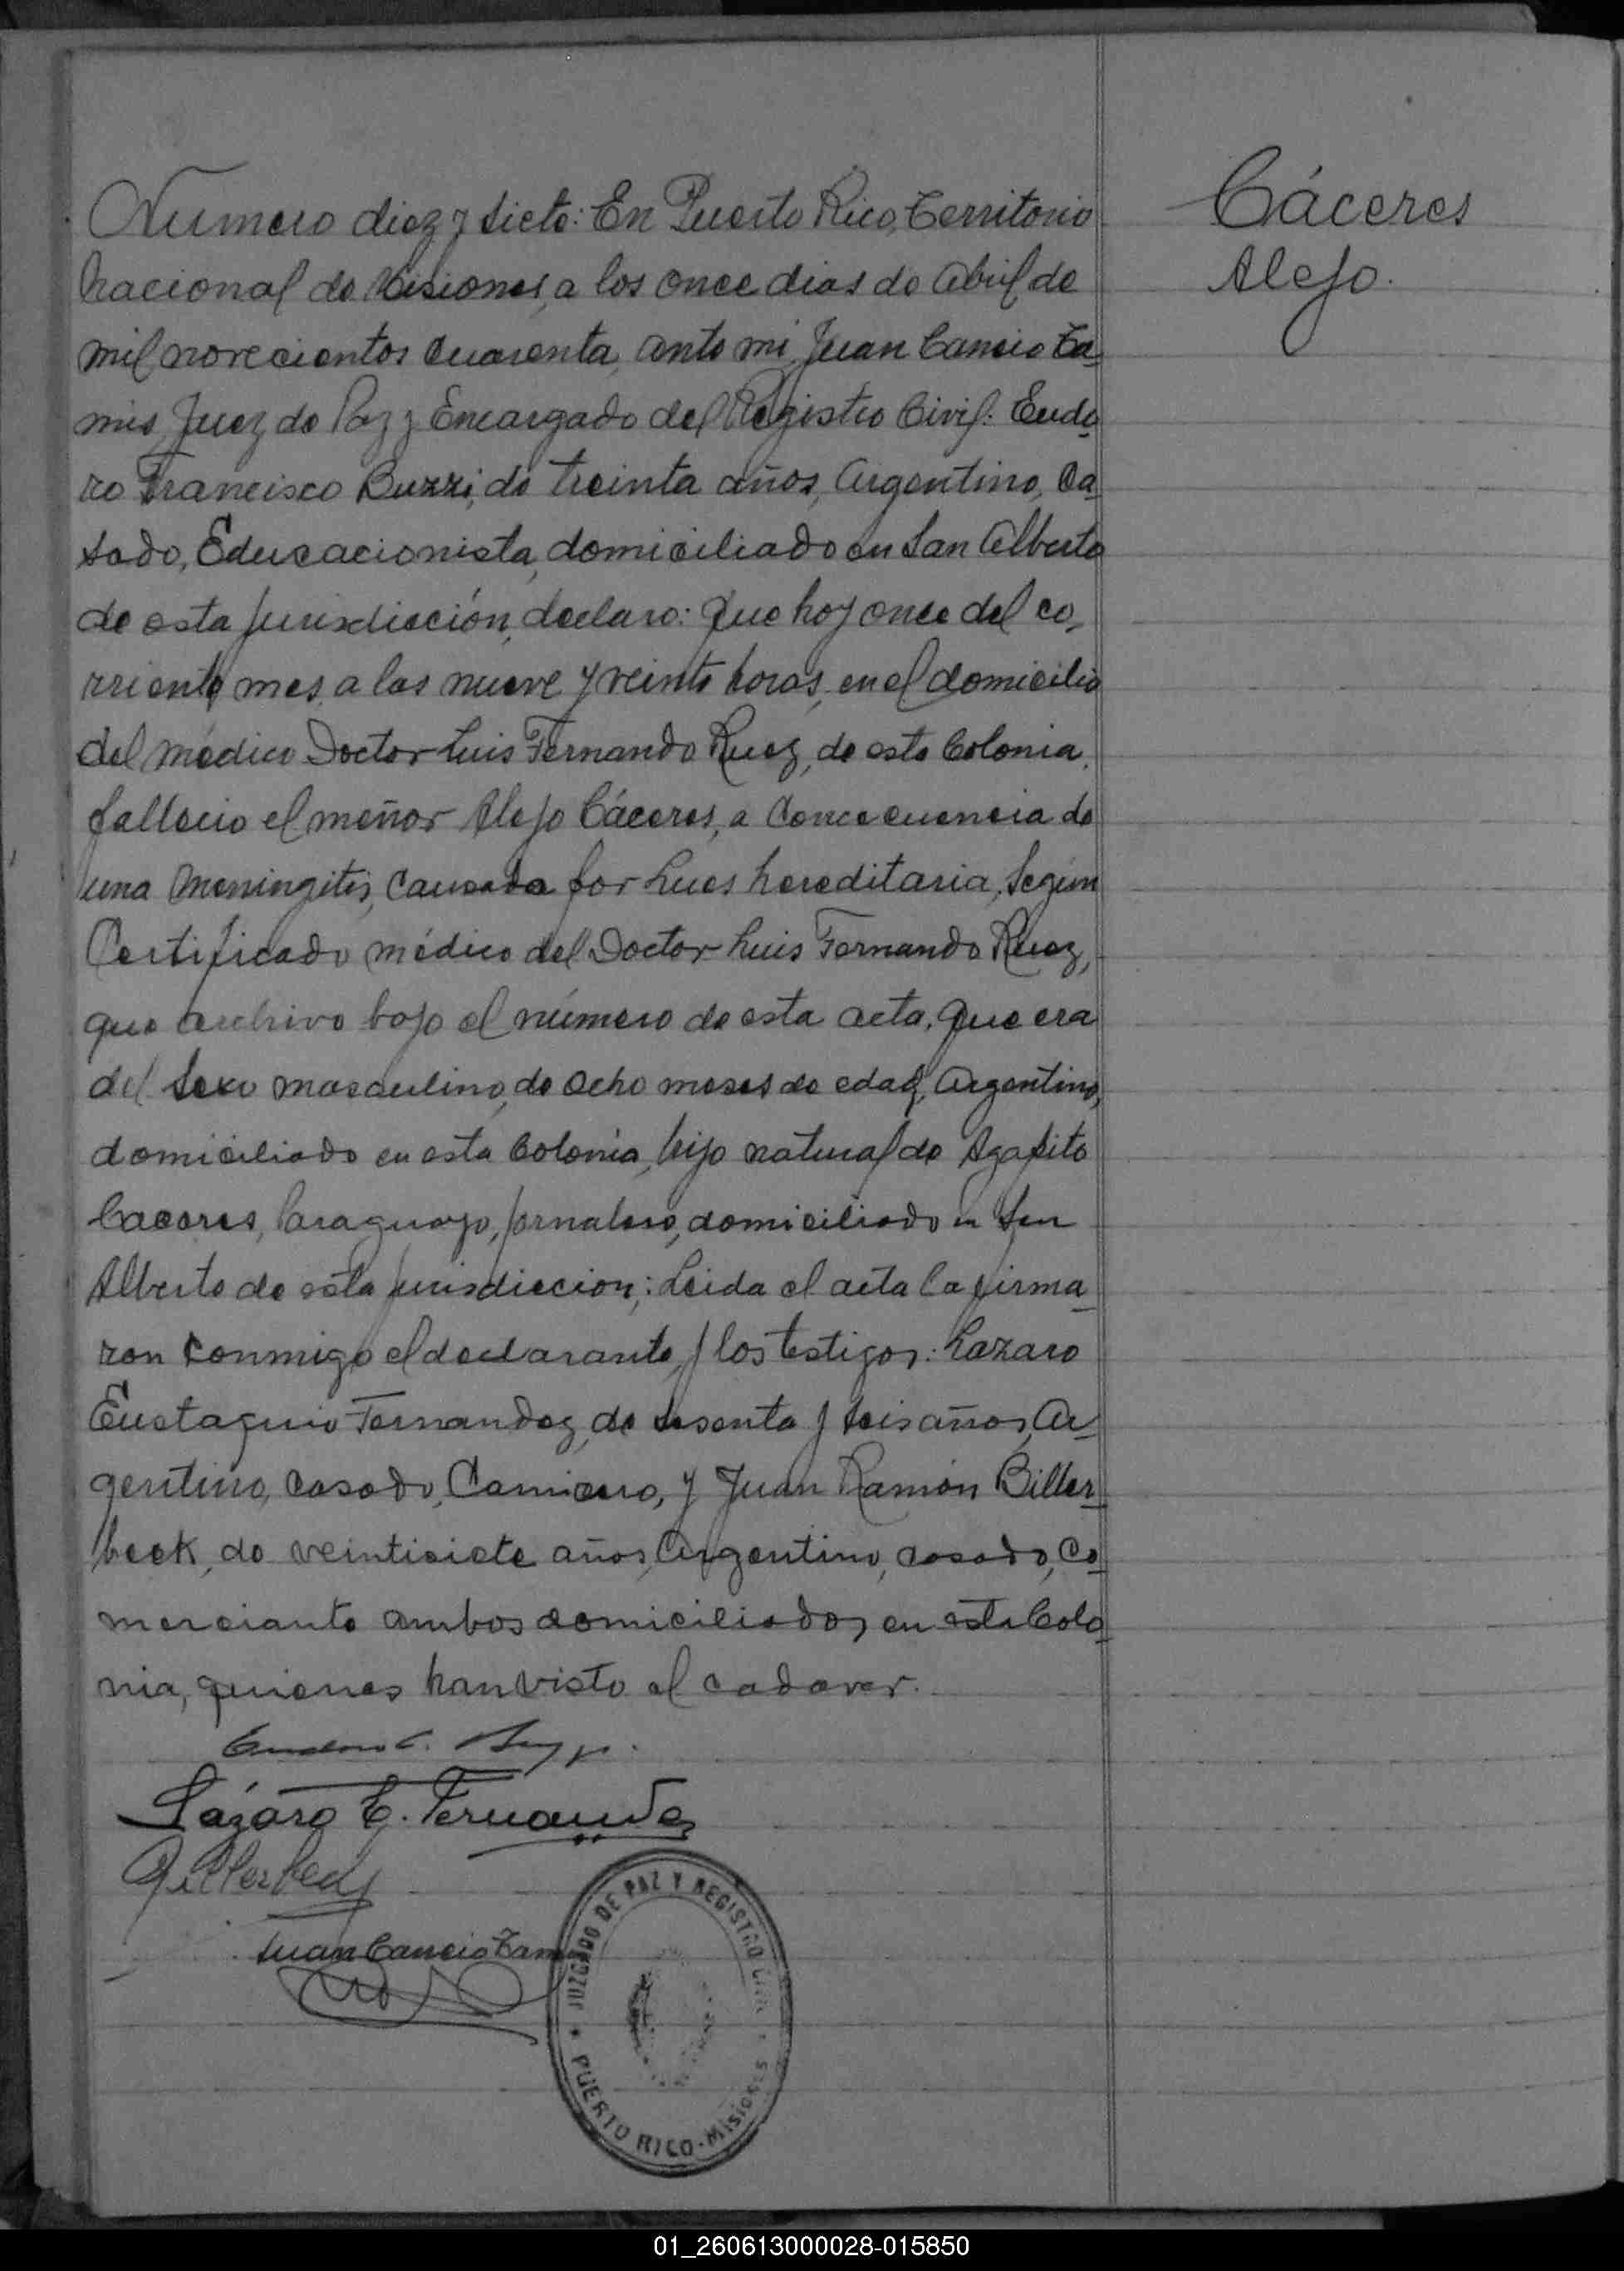 Cáceres
Alejo.
Numero diez y siete: En Puerto Rico, Territorio
Nacional de Misiones, a los once dias de Abril de
mil novecientos cuarenta, ante mi, Juan Cancio Ta-
mis, Juez de Paz y Encargado del Registro Civil: Eudo-
ro Francisco Buzzi, de treinta años, Argentino, Ca-
sado, Educacionista, domiciliado en San Alberto
de esta jurisdicción, declaro: Que hoy once del co-
rriente mes, a las nueve y veinte horas, en el domicilio
del médico Doctor Luis Fernando Ruez, de esta Colonia,
fallecio el meñor Alejo Cáceres, a Concecuencia de
una Meningitis, Causada por Lues hereditaria, Según
Certificado médico del Doctor Luis Fernando Ruez,
que archivo bajo el número de esta acta, Que era
del Sexo masculino, de ocho meses de edad, Argentino,
domiciliado en esta Colonia, hijo natural de Agapito
Caceres, Paraguayo, jornalero, domiciliado en San
Alberto de esta jurisdiccion; Leida el acta la firma-
ron conmigo el declarante, y los testigos: Lazaro
Eustaquio Fernandez, de sesenta y seis años, Ar-
gentino, casado, Carnicero, y Juan Ramón Biller-
beck, de veintisiete años, Argentino, casado, Co-
merciante ambos domiciliados en esta Colo-
nia, quienes han visto el cadaver.
Lázaro E. Fernandez
Billerbeck
Juan Cancio Tamis
JUZGADO DE PAZ Y REGISTRO CIVIL
PUERTO RICO - Misiones
01_260613000028-015850